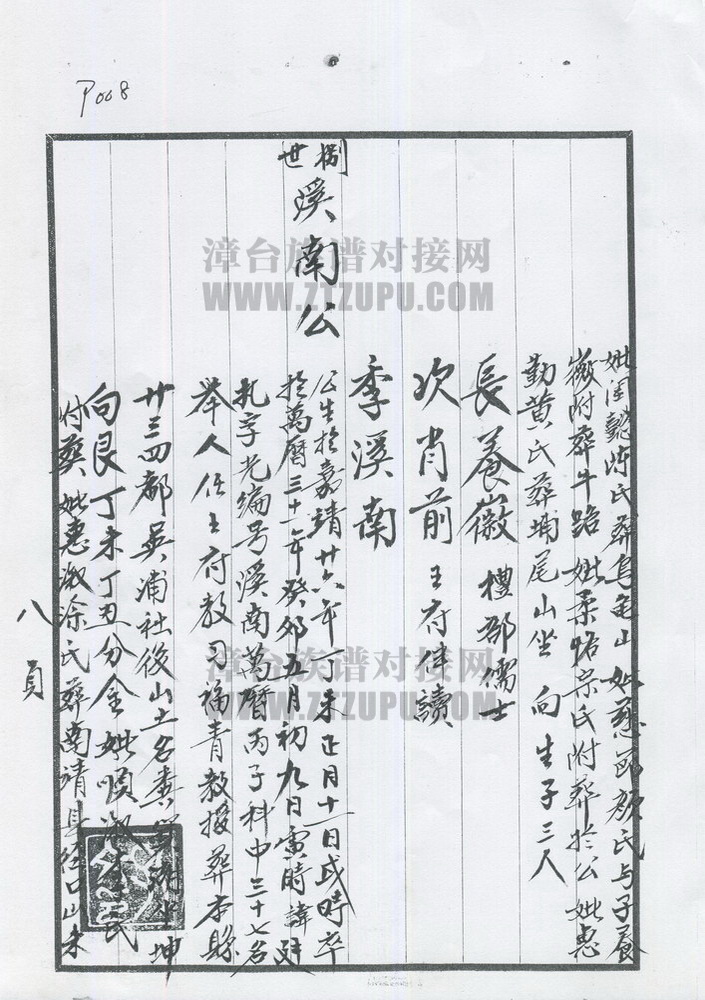 P008
妣淑懿陳氏葬烏龟山 妣慈節顏氏与子養
徽附葬牛路 妣柔恪宗氏附葬於公 妣惠
勤黄氏葬埔尾山坐 向 生子三人
長養徽 禮部儒士
次肖前 王府伴讀
季溪南
捌世
溪南公
公生於嘉靖廿六年丁未正月十一日戌時卒
於萬曆三十一年癸卯五月初九日寅時諱廷
礼字尤编号溪南萬曆丙子科中三十七名
举人任王府教习福青教授葬本縣
廿三四都吳浦社後山土名 坐坤
向艮丁未丁丑分金 妣順淑 氏
附葬 妣惠淑涂氏葬南靖县径口山未
八頁
漳台族谱对接网
WWW.ZTZUPU.COM
漳台族谱对接网
WWW.ZTZUPU.COM